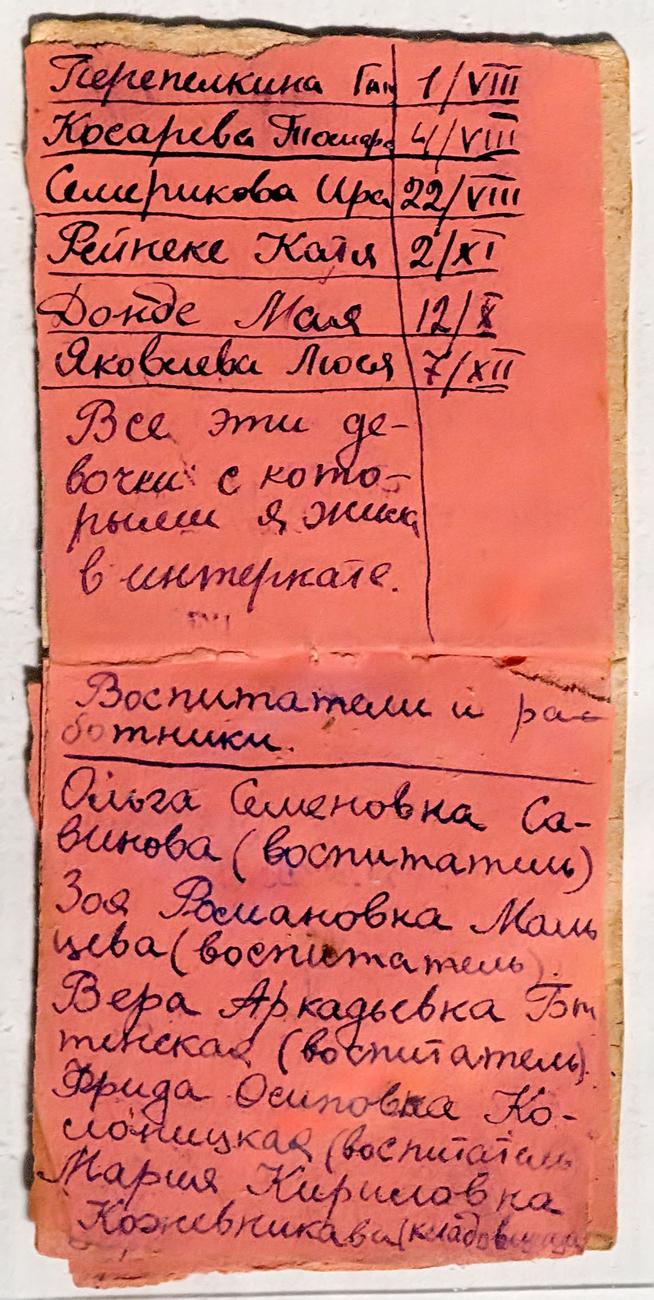 Перепелкина 1/VIII
Косарева Тамара 4/VIII
Семерикова Ира 22/VIII
Рейнеке Катя 2/XI
Донде Мая 12/X
Яковлева Люся 7/XII
Все эти де-
вочки с кото-
рыми я жила
в интернате.
Воспитатели и ра-
ботники.
Ольга Семеновна Са-
винова (воспитатель)
Зоя Романовна Маль
цева (воспитатель).
Вера Аркадьевна
тенская (воспитатель).
Фрида Осиповна Ко-
лоницкая (воспитатель
Мария Кириловна
Кожевникава (кладовщица)